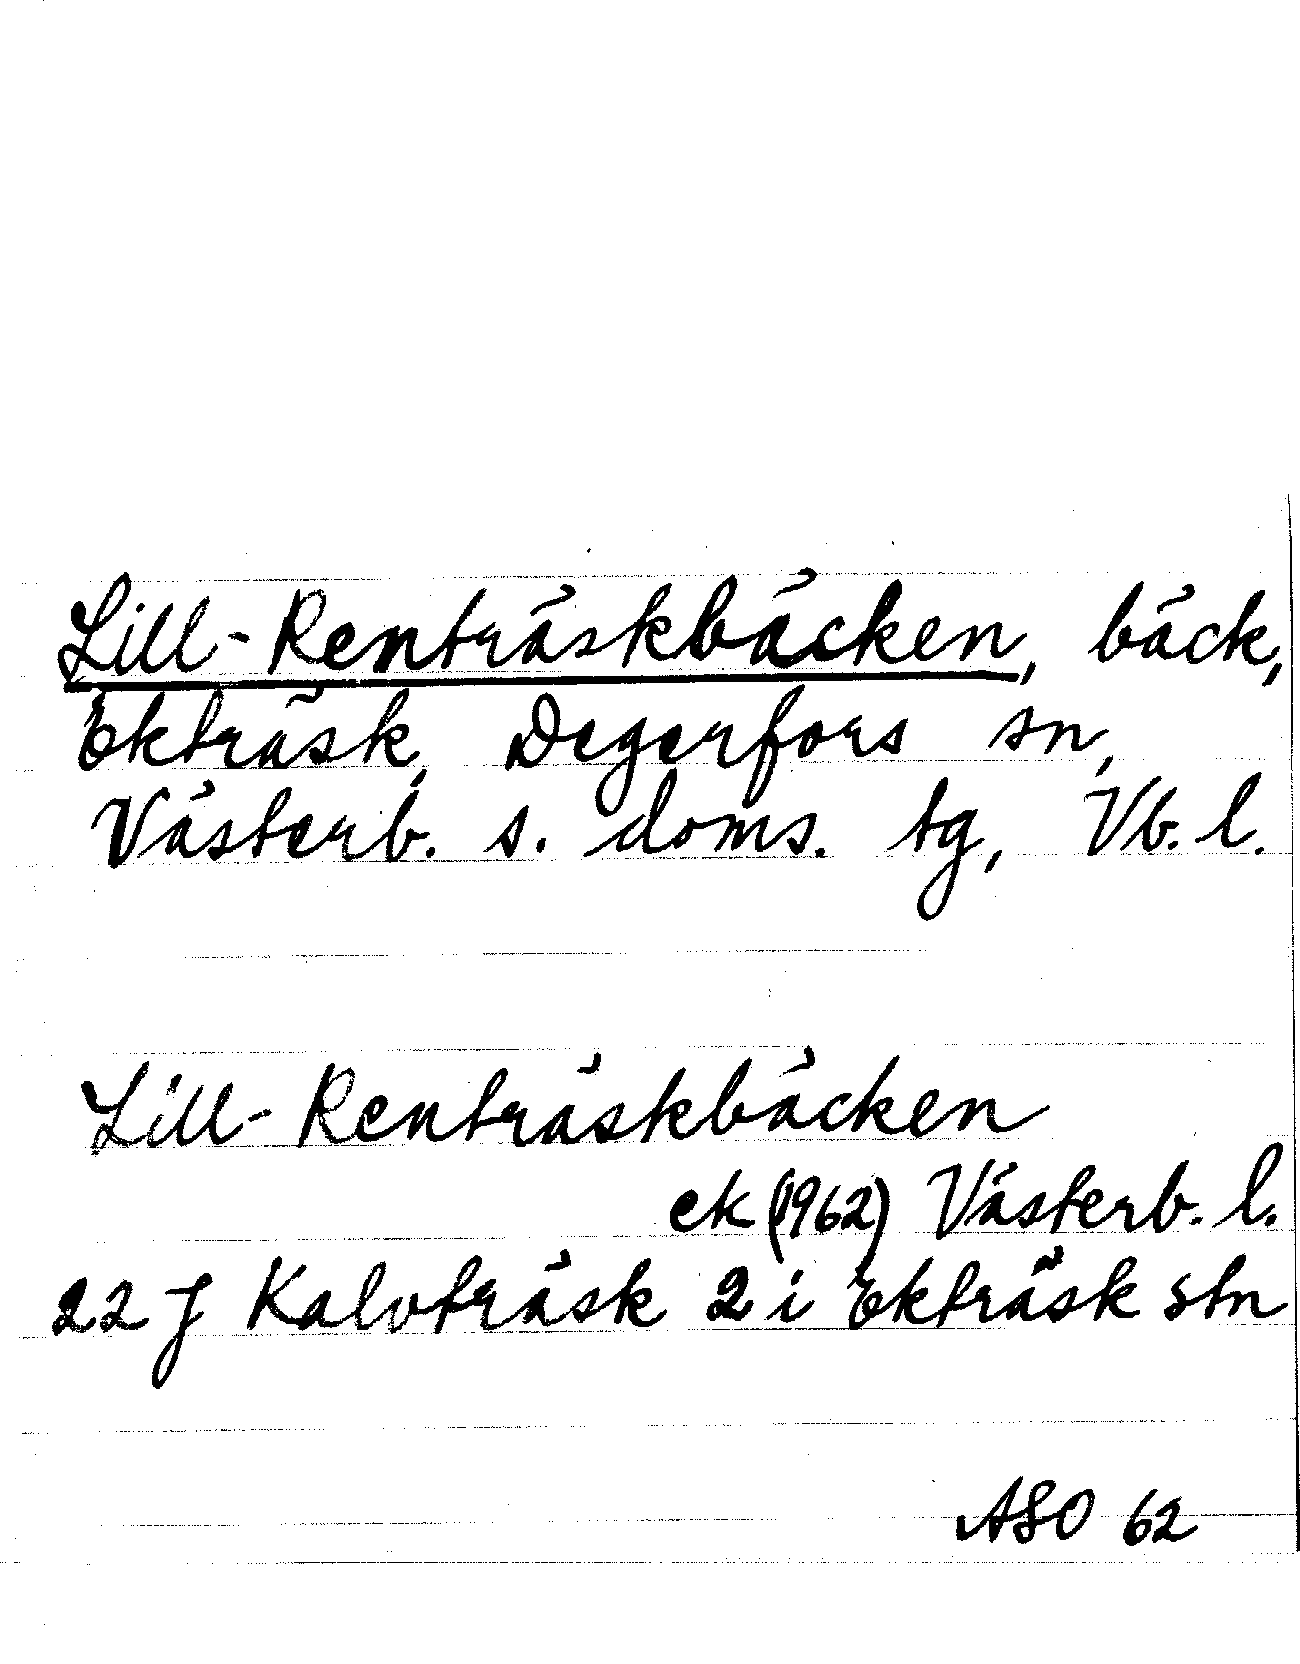 Lill-Renträskbäcken, bäck,
Ekträsk, Degerfors sn,
Västerb. s. doms. tg, Vb. l.
Lill-Renträskbäcken
ek (1962) Västerb. l.
22 J Kalvträsk 2 i Ekträsk stn
ASO 62